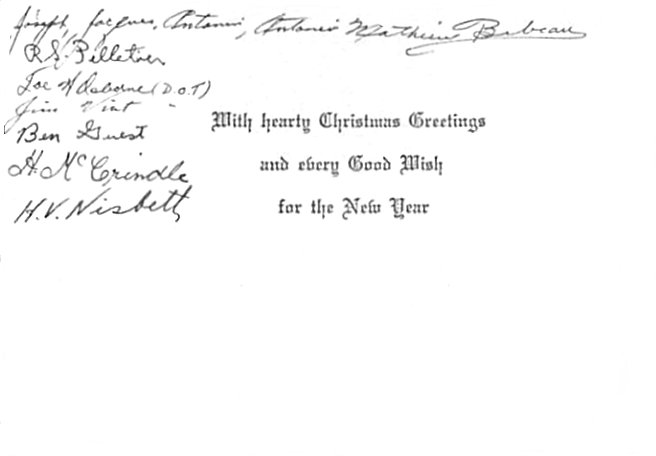 Joseph, Jacques, Antonio, Antonio Mathieu Babeau
R.S. Pelletier
Joe H Osborne (D.O.T)
Jim
Ben Guest
H. McCrindle
H.V. Nisbett
With hearty Christmas Greetings
and every Good Wish
for the New Year